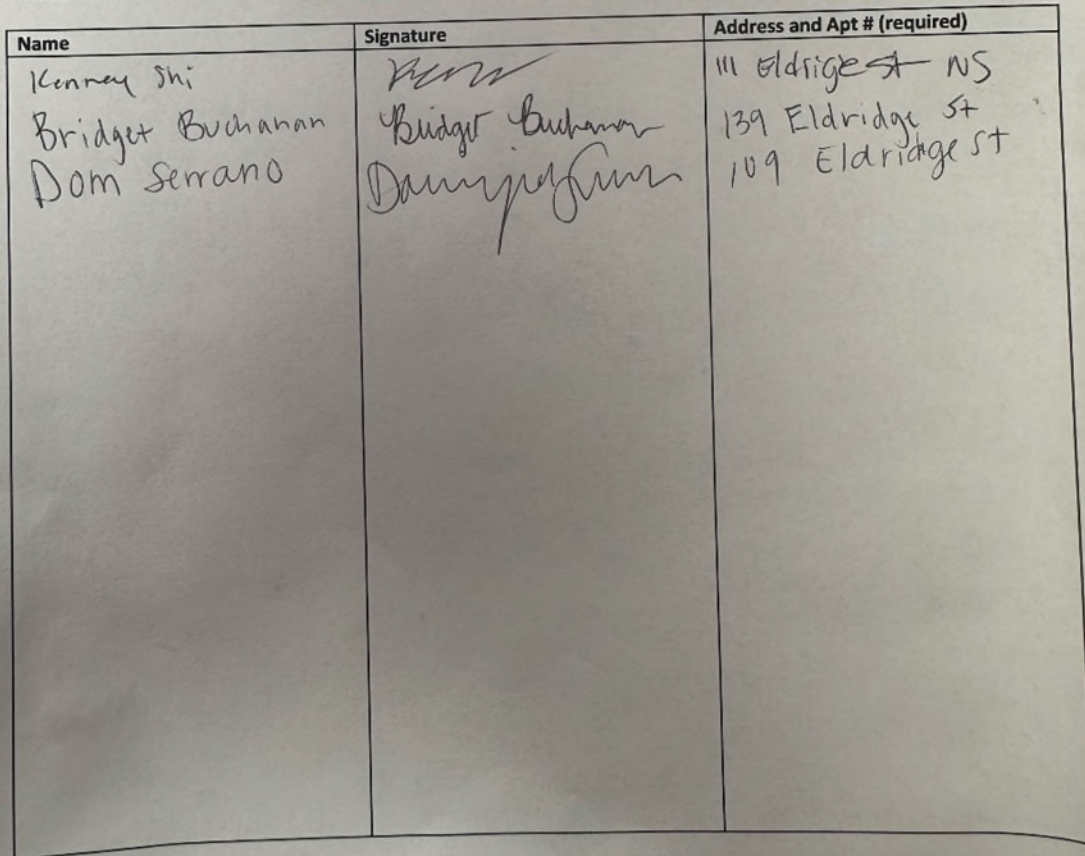 Name Signature Address and Apt # (required)
Kenney Shi 111 Eldrige st NS
Bridget Buchanan Bridget Buchanan 139 Eldridge St
Dom Serrano 109 Eldridge St